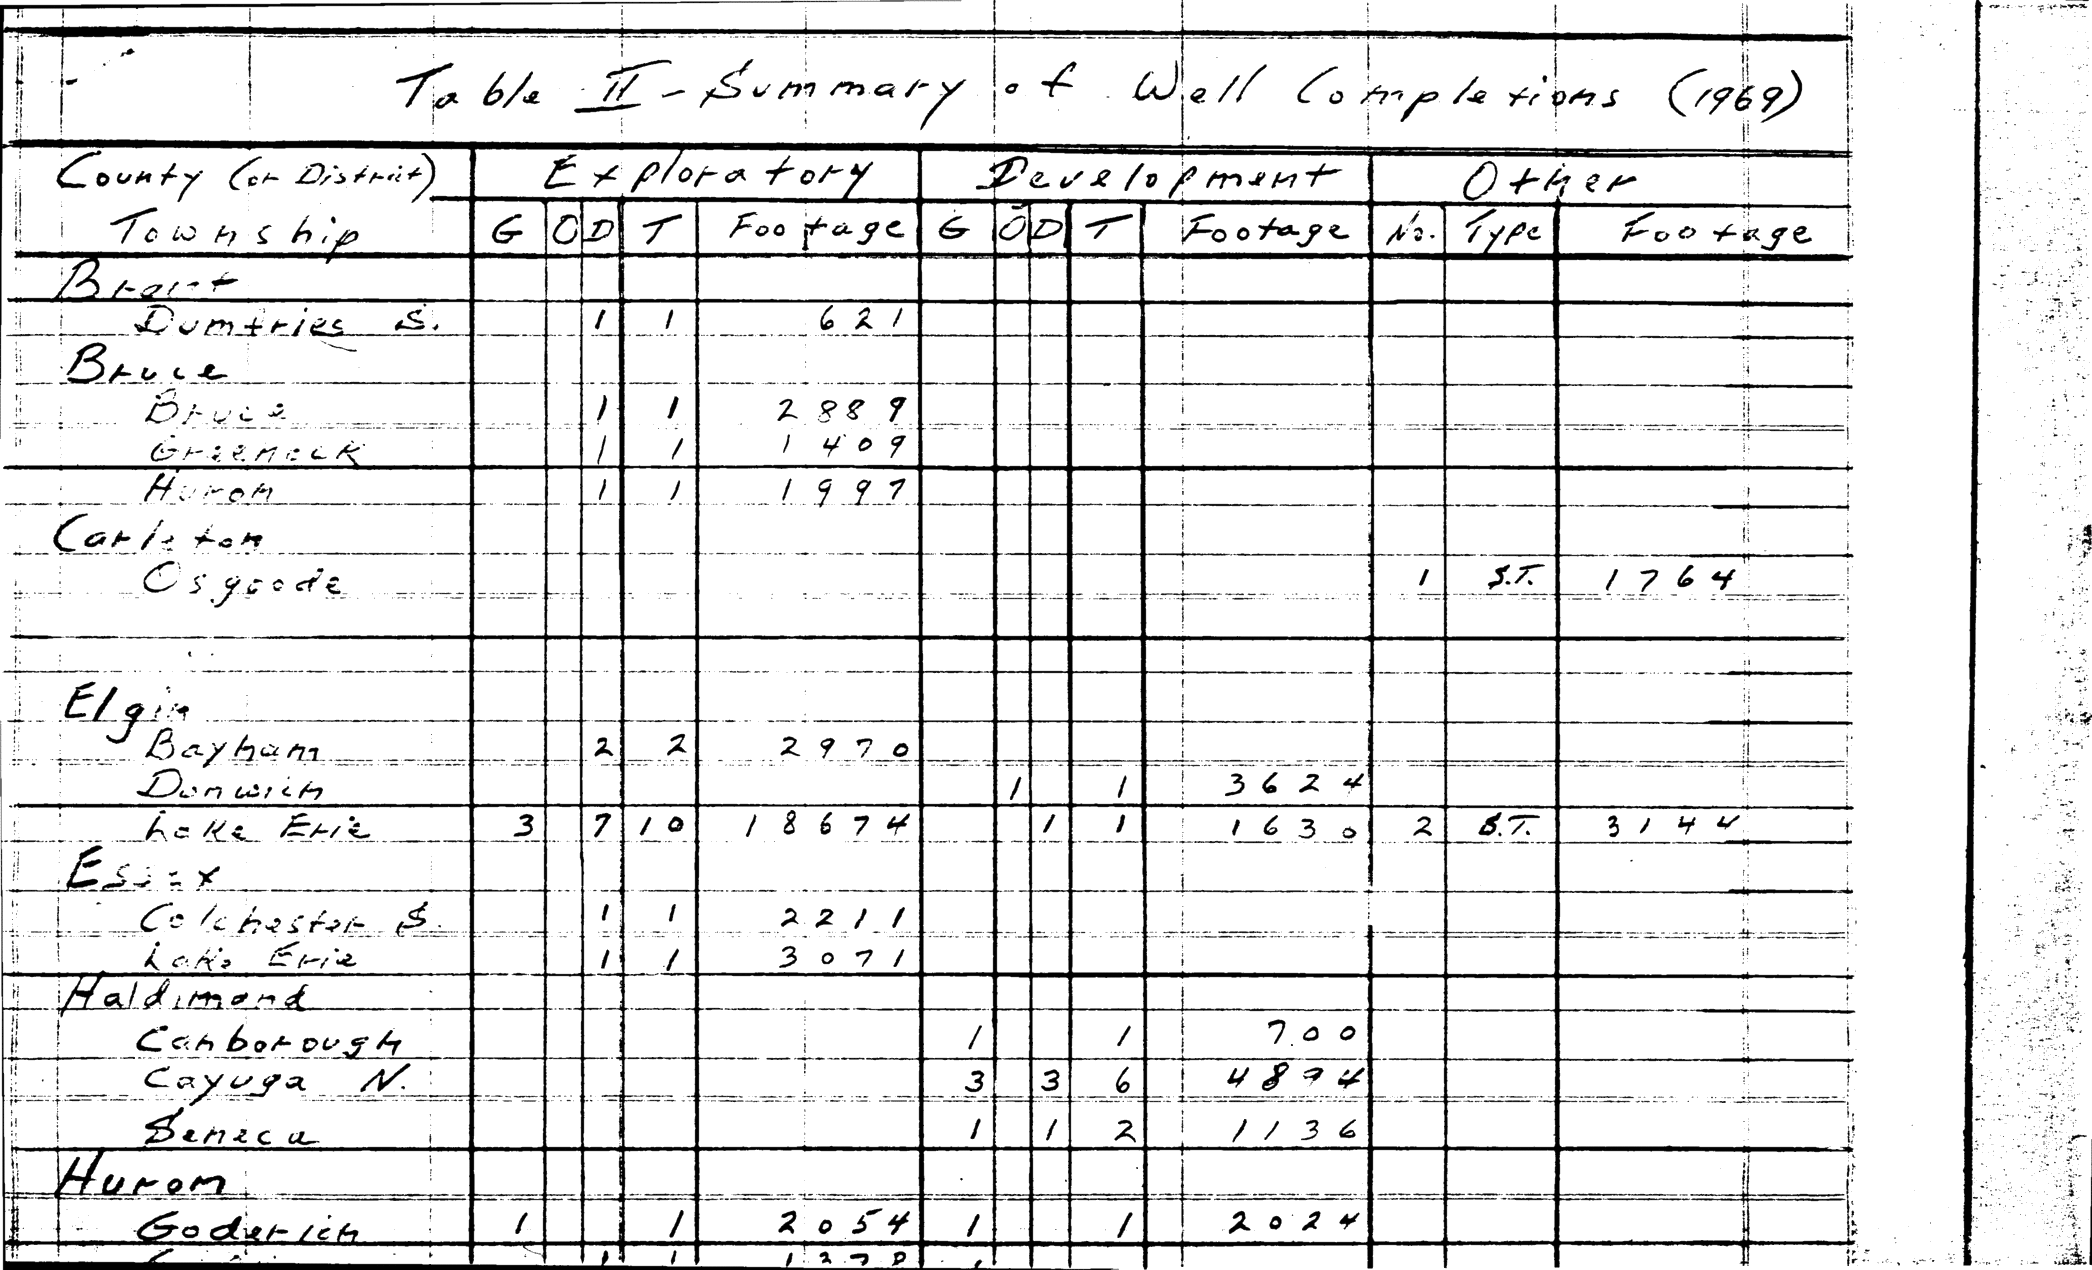 Table II - Summary of Well Completions (1969)
County (or District) Exploratory Development Other
Township G O D T Footage G O D T Footage No. Type Footage
Brant
Dumfries S. 1 1 621
Bruce
Bruce 1 1 2889
Greenock 1 1 1409
Huron 1 1 1997
Carleton
Osgoode 1 S.T. 1764
Elgin
Bayham 2 2 2970
Dunwich 1 1 3624
Lake Erie 3 7 10 18674 1 1 1630 2 S.T. 3144
Essex
Colchester S. 1 1 2211
Lake Erie 1 1 3071
Haldimand
Canborough 1 1 700
Cayuga N. 3 3 6 4894
Seneca 1 1 2 1136
Huron
Goderich 1 1 2054 1 1 2024
1 1